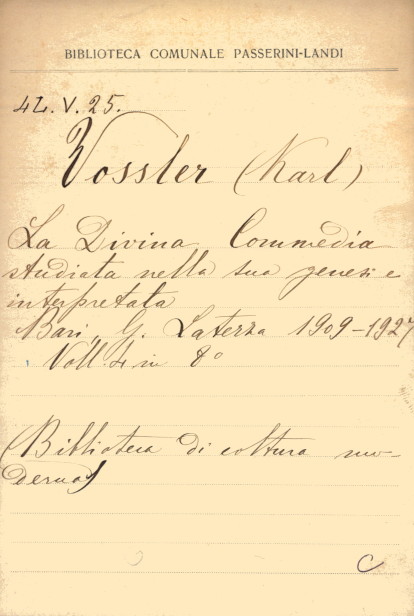 BIBLIOTECA COMUNALE PASSERINI-LANDI
4L.V.25.
Vossler (Karl)
La Divina Commedia
studiata nella sua genesi e
interpretata
Bari, G. Laterza 1909-1927
Voll. 4 in 8°
(Biblioteca di coltura mo-
derna)
C